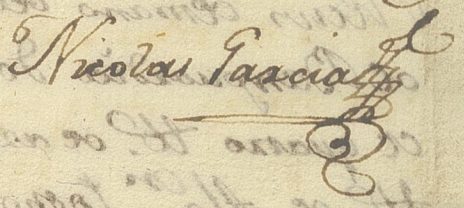 Nicolas Garcia